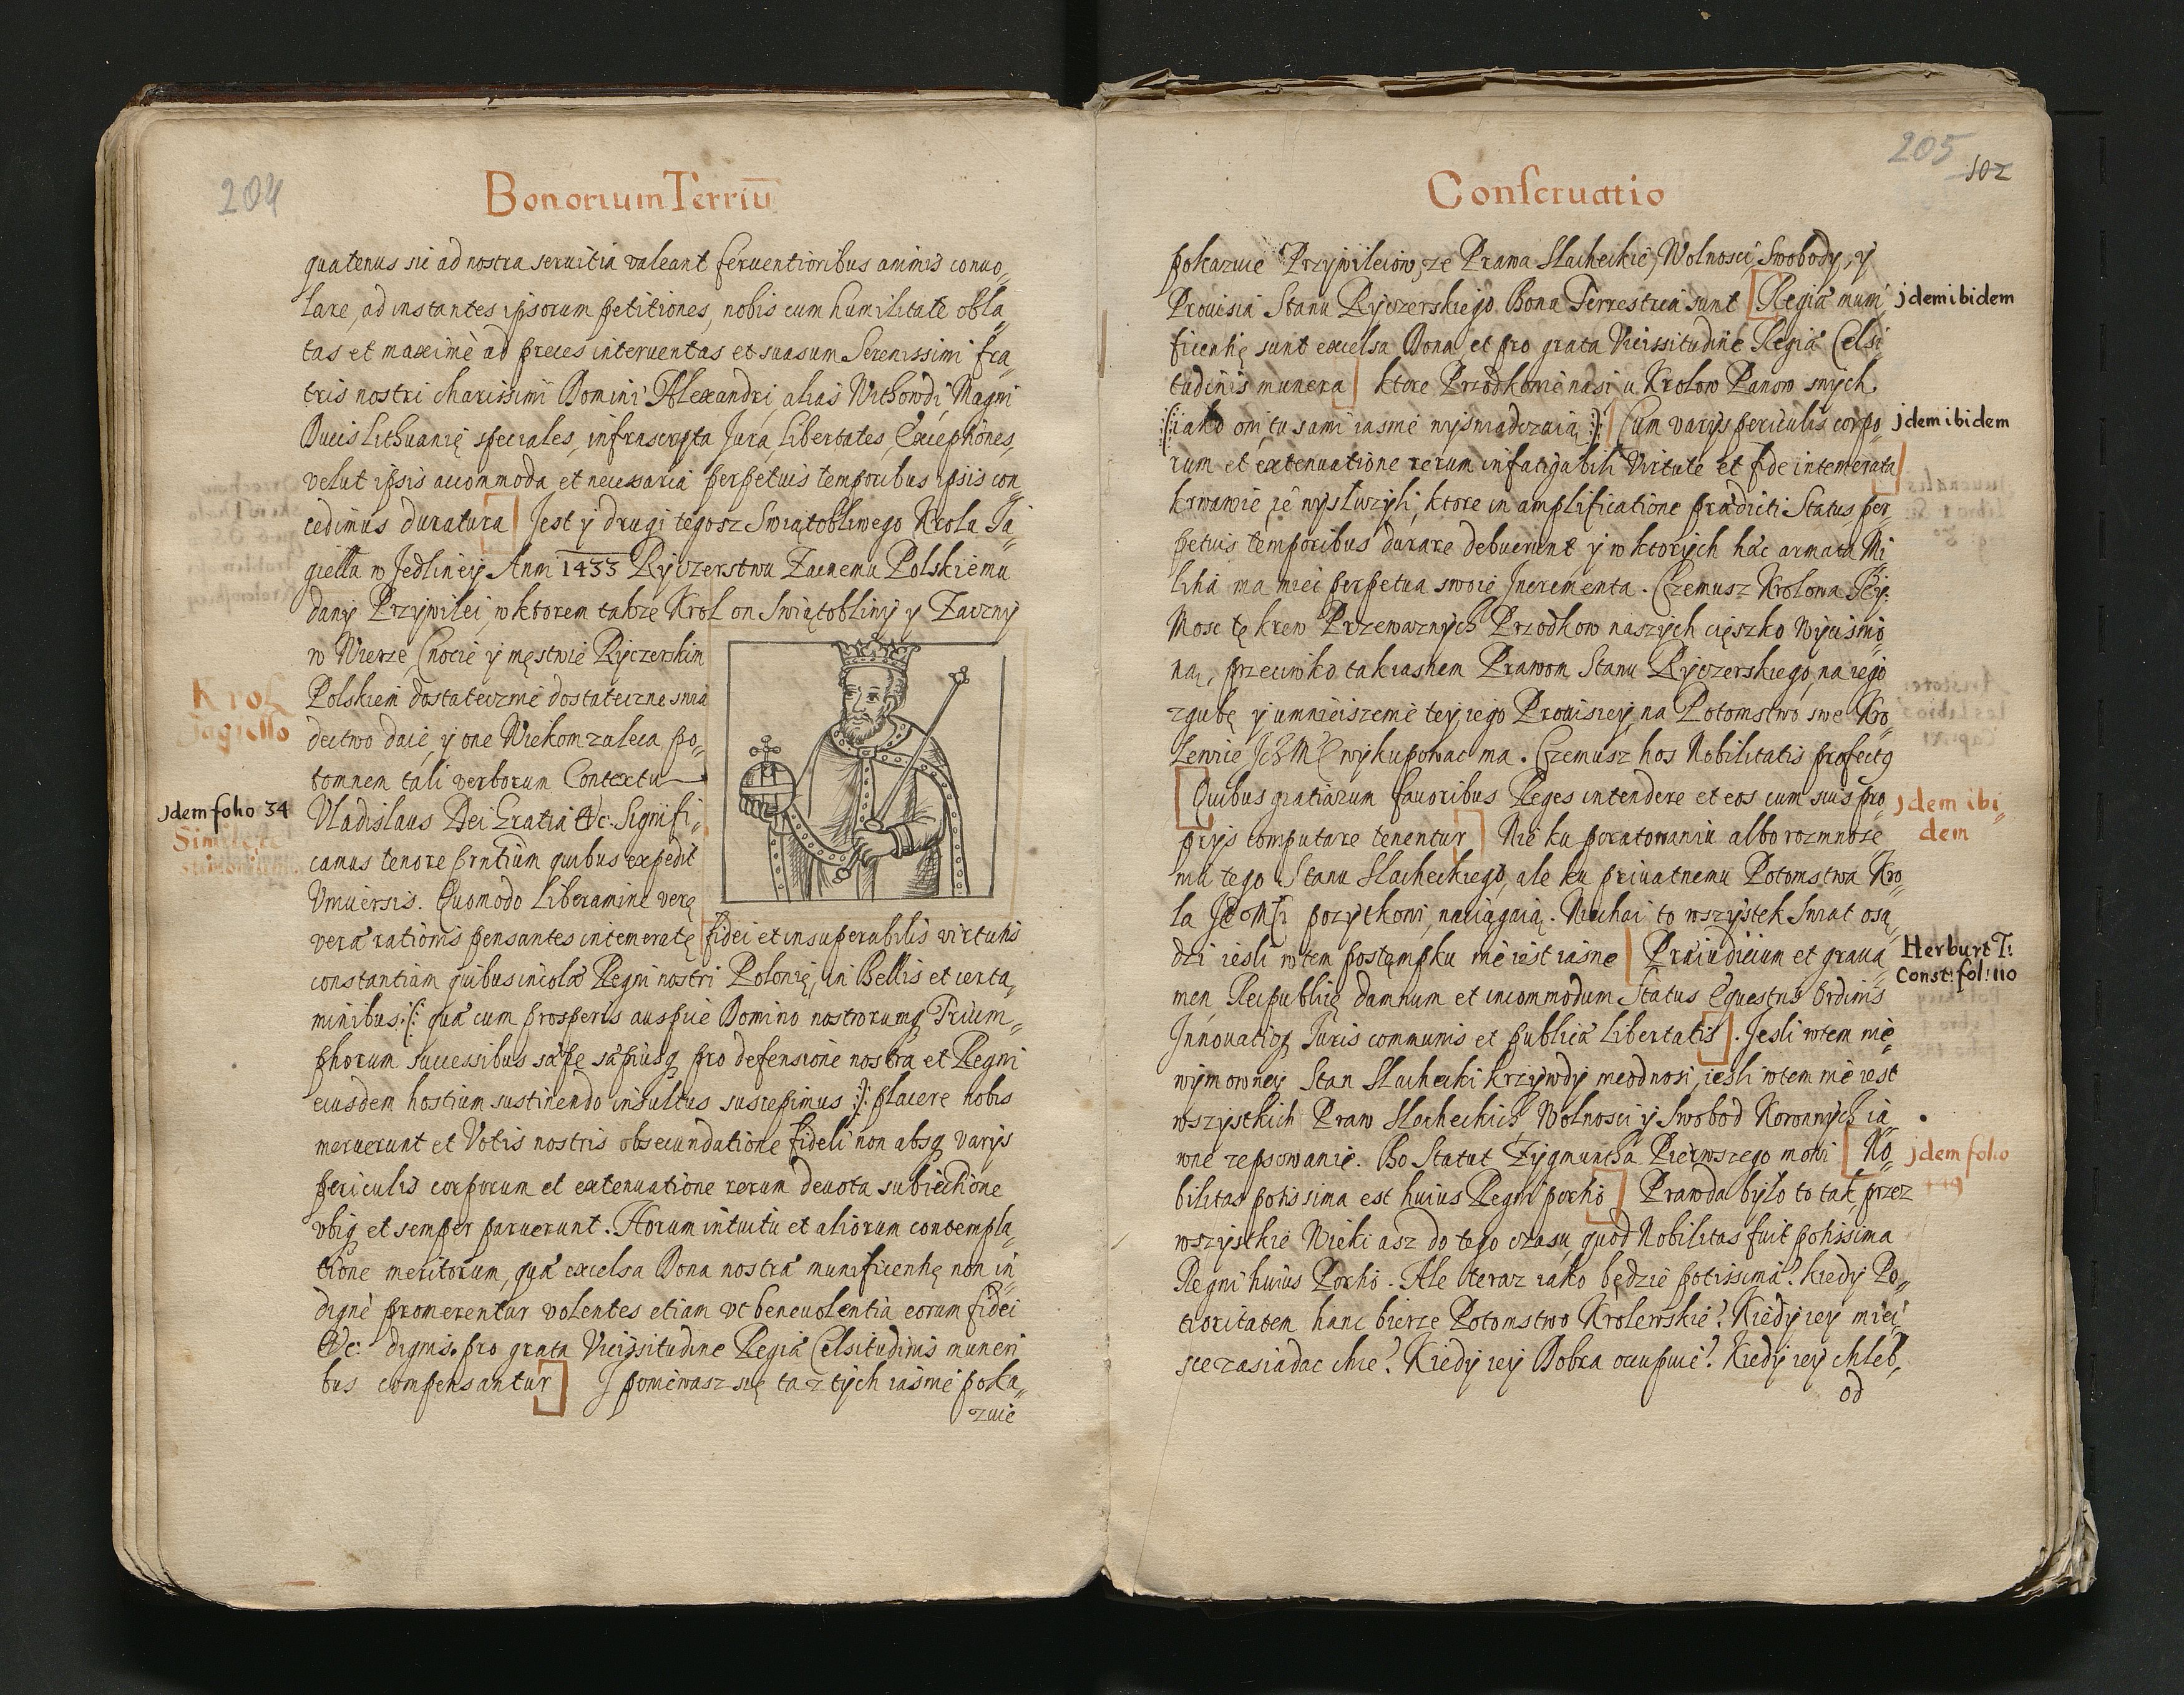 204
Bonorum Terriū
quatenus sic ad nostra seruitia valeant feruentioribus animis conuo„
lare, ad instantes ipsorum petitiones, nobis cum humilitate obla„
tas et maximè ad preces interuentas et suasum Serenissimi fra„
tris nostri charissimi Domini Alexandri alias Withowdi Magni
Ducis Lithuanię speciales, infrascripta Jura, Libertates, Exceptiones,
velut ipsis accommoda et necessaria perpetuis temporibus ipsis con„
cedimus duratura] Jest y drugi tegosz Swiątobliwego Krola Ja„
giella w Jedlineÿ Anni 1433 Ryczerstwu Zacnemu Polskiemu
danÿ Przywilei w ktorem takze Krol on Swiątobliwÿ y Zacznÿ
w Wierze Cnocie ÿ męstwie Ryczerskim
Polskiem dostatecznie dostateczne swia
dectwo daie, ÿ one Wiekom zaleca po„
tomnem tali verborum Contextu
Vladislaus Dei Gratia &c: Signifi„
camus tenore prntium quibus expedit
Vniuersis. Quomodo Liberamine verę
vera rationis pensantes intemeratę fidei et insuperabilis virtutis
constantiam quibus incolæ Regni nostri Polonię, in Bellis et certa„
minibus :/: quæ cum prosperis auspicie Domino nostrorumq Trium„
phorum successibus sæpe sæpiusq pro defensione nostra et Regni
eiusdem hostium sustinendo insultus suscepimus :/: placere nobis
meruerunt et Votis nostris obsecundatione fideli non absq varÿs
periculis corporum et extenuatione rerum deuota subiectione
vbiq et semper paruerunt. Horum intuitu et aliorum contempla„
tione meritorum, quæ excelsa Dona nostræ munificentię non in„
dignè promerentur volentes etiam vt beneuolentia eorum fidei
&c: dignis pro grata Vicissitudine Regiæ Celsitudinis muneri
bus compensantur] J poniewasz się ta z tÿch iasnie poka„
zuie
Krol
Jagiello
Jdem folio 34
205
102
Conseruatio
pokazuie Przywileiow, ze Prawa Slacheckie, Wolnosci, Swobodÿ, ÿ
Prouisia Stanu Ryczerskiego. Bona Terrestria sunt [Regiæ muni„
ficentię sunt excelsa Dona et pro grata Vicissitudine Regiæ Celsi„
tudinis munera] ktore Przodkowie nasi u Krolow Panow swych
:/: iako oni tu sami iasnie wÿswiadczaią :/: [Cum varÿs periculis corpo„
rum et extenuatione rerum infatigabili Virtute et fide intemerata]
krwawie ie wysluzÿli, ktore in amplificatione prædicti Status per„
petuis temporibus durare debuerunt, ÿ w ktorych hæc armata Mi
litia ma miec perpetua swoie Jncrementa. Czemusz Krolowa JEÿ
Mosc tę krew Przewaznÿch Przodkow naszÿch cięszko Wÿcisnio„
ną, przeciwko tak iasnem Prawom Stanu Ryczerskiego, na iego
zgubę ÿ umnieiszenie teÿ iego Prouisieÿ, na Potomstwo swe Kro„
Lewic JchMC wÿkupowac ma. Czemusz hos Nobilitatis profectq
[Quibus gratiarum fauoribus Reges intendere et eos cum suis pro„
prÿs computare tenentur] Nie ku poratowaniu albo rozmnoze„
niu tego Stanu Slacheckiego, ale ku priuatnemu Potomstwa Kro„
la JeoMsci pozÿtkowi, naciągaią. Niechai to wszÿstek Swiat osą„
dzi iesli w tem postęmpku nie iest iasne [Præiudicium et graua„
men Reipublicę damnum et incommodum Status Equestris Ordinis
Jnnouatioq Juris communis et publicæ Libertatis]. Jesli w tem nie„
wÿmowneÿ Stan Slachecki krzÿwdÿ nieodnosi, iesli w tem nie iest
wszÿstkich Praw Slacheckich Wolnosci ÿ Swobod Koronnÿch ia„
wne zepsowanie. Bo Statut Zÿgmuntha Pierwszego mowi [No„
bilitas potissima est huius Regni portio] Prawda bÿlo to tak, przez
wszÿstkie Wieki asz do tego czasu, quod Nobilitas fuit potissima
Regni huius Portio. Ale teraz iako będzie potissima? kiedÿ Po„
tioritatem hanc bierze Potomstwo Krolewskie? Kiedÿ ieÿ miei„
sce zasiadac chce? Kiedÿ ieÿ Dobra occupuie? Kiedÿ ieÿ chleb,
od
jdem ibidem
jdem ibidem
jdem ibi„
dem
Herburt T:
Const: fol: 110
jdem folio